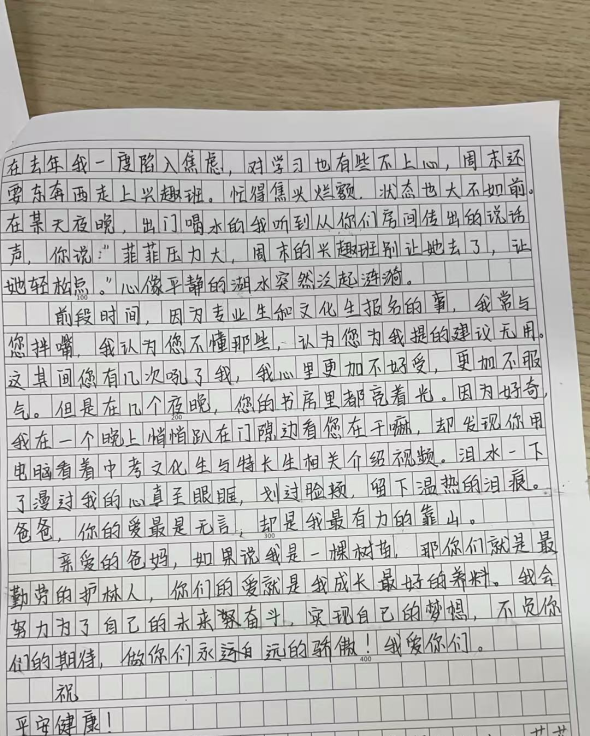 在去年我一度陷入焦虑，对学习也有些不上心，周末还
要东奔西走上兴趣班。忙得焦头烂额，状态也大不如前。
在某天夜晚，出门喝水的我听到从你们房间传出的说话
声，你说："菲菲压力大，周末的兴趣班别让她去了，让
她轻松点。"心像平静的湖水突然泛起涟漪。
100
前段时间，因为专业生和文化生报名的事，我常与
您拌嘴，我认为您不懂那些，认为您为我提的建议无用。
这其间您有几次吼了我，我心里更加不好受，更加不服
气。但是在几个夜晚，您的书房里都亮着光。因为好奇，
200
我在一个晚上悄悄趴在门隙边看您在干嘛，却发现你用
电脑看着中考文化生与特长生相关介绍视频。泪水一下
了漫过我的心直至眼眶，划过脸颊，留下温热的泪痕。
爸爸，你的爱最是无言，却是我最有力的靠山。
300
亲爱的爸妈，如果说我是一棵树苗，那你们就是最
勤劳的护林人，你们的爱就是我成长最好的养料。我会
努力为了自己的未来奋斗，实现自己的梦想，不负你
们的期待，做你们永远的骄傲！我爱你们。
400
祝
平安健康！